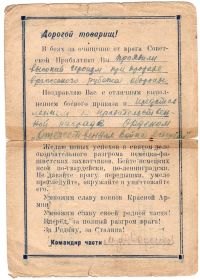 Дорогой товарищ!
В боях за очищение от врага Советской Прибалтики Вы проявили
высокий героизм при прорыве
вражеского рубежа обороны
Поздравляю Вас с отличным выполнением боевого приказа и
правительственной награде
Отечественная война
Желаю новых успехов в святом деле
окончательного разгрома немецко-фашистских захватчиков. Бейте немецких
псов по-гвардейски, по-ленинградски.
Не давайте врагу передышки, умело
преследуйте, окружайте и уничтожайте
его.
Умножим славу воинов Красной Армии!
Умножим славу своей родной части!
Вперед, за полный разгром врага!
За Родину, за Сталина!
Командир части